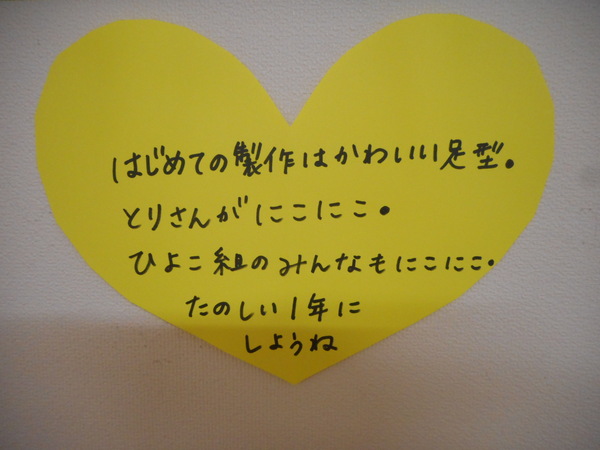 はじめての製作はかわいい足型。
とりさんがにこにこ。
ひよこ組のみんなもにこにこ。
たのしい1年に
しようね